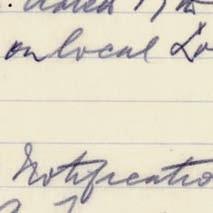 dated 19th
on local Lo
Notificatio